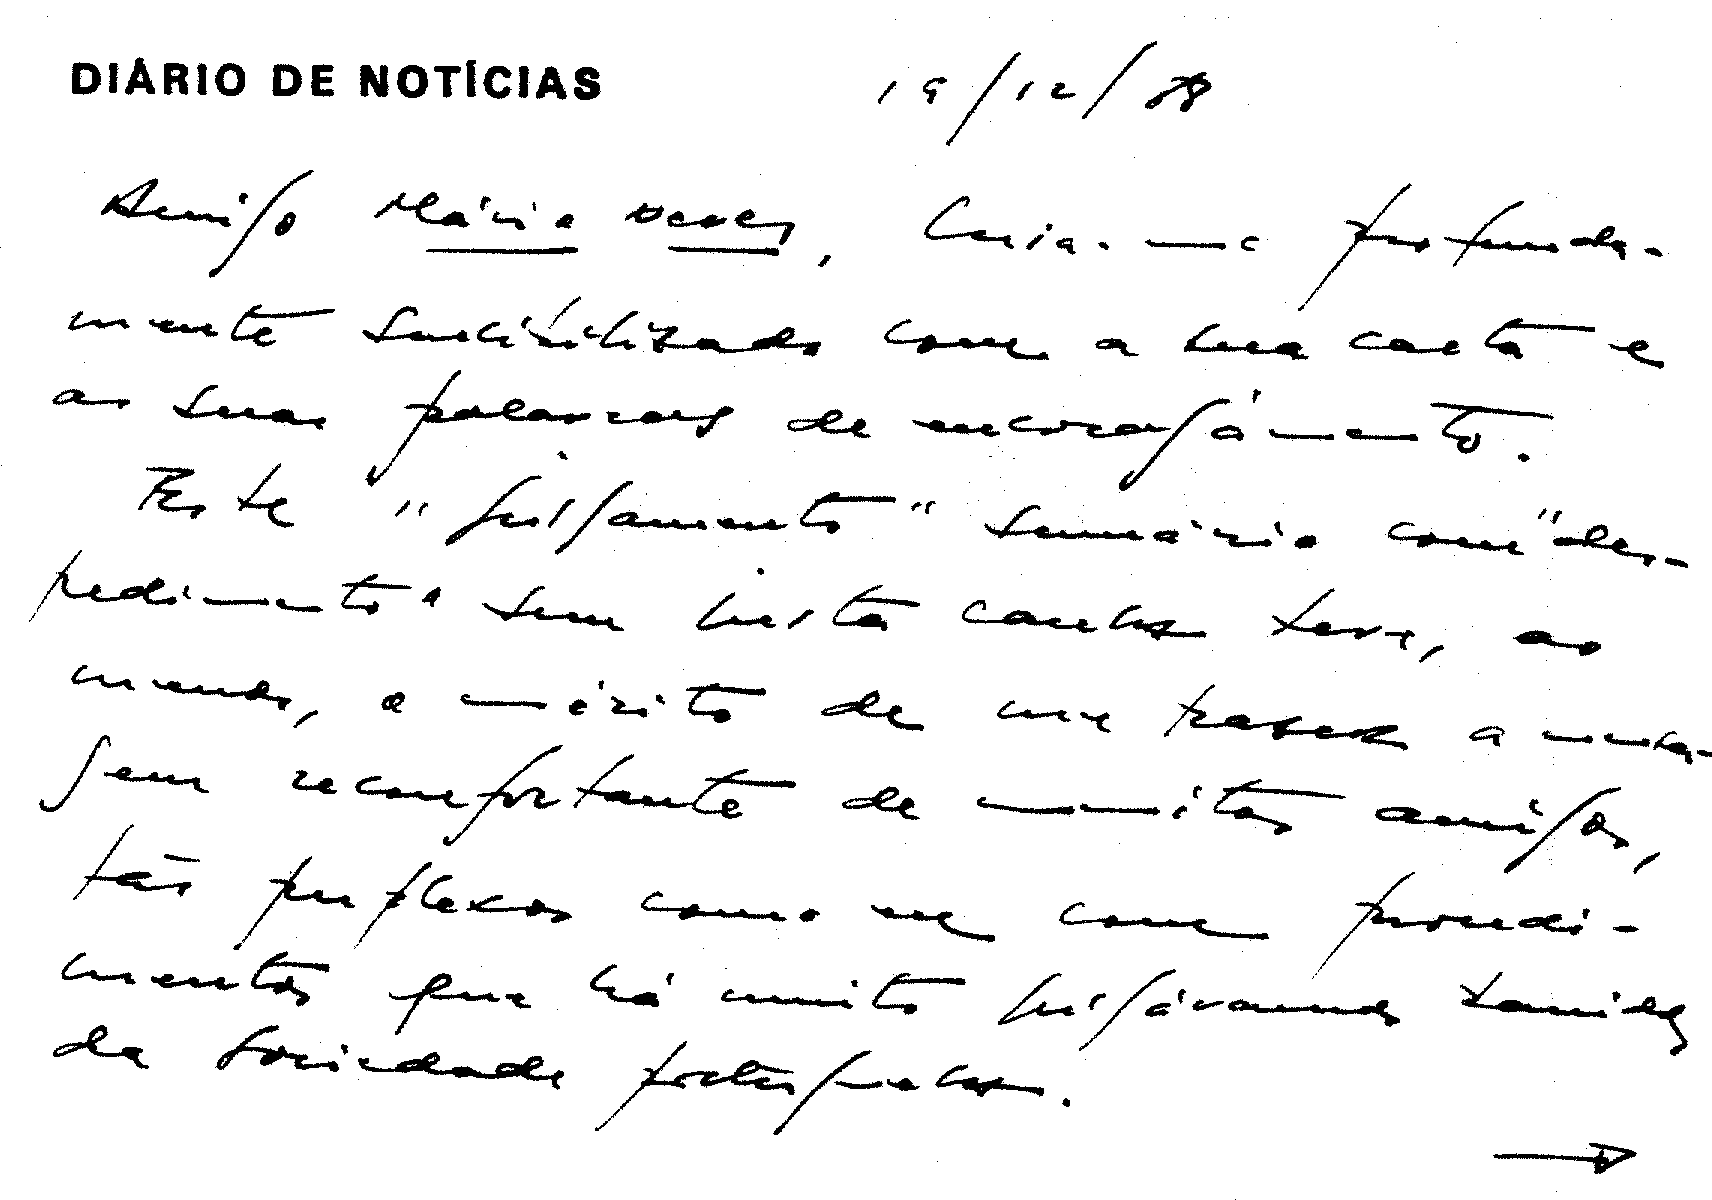 DIÁRIO DE NOTÍCIAS 19/12/88
Amigo Mário Neves, Cria-me profunda-
mente sensibilizado com a sua carta e
as suas palavras de encorajamento.
Este "julgamento" sumário com "des-
pedimento" sem justa causa teve, ao
menos, o mérito de me trazer a mensa-
gem reconfortante de muitos amigos,
tão perplexos como eu com procedi-
mentos que há muito julgávamos banidos
da sociedade portuguesa.